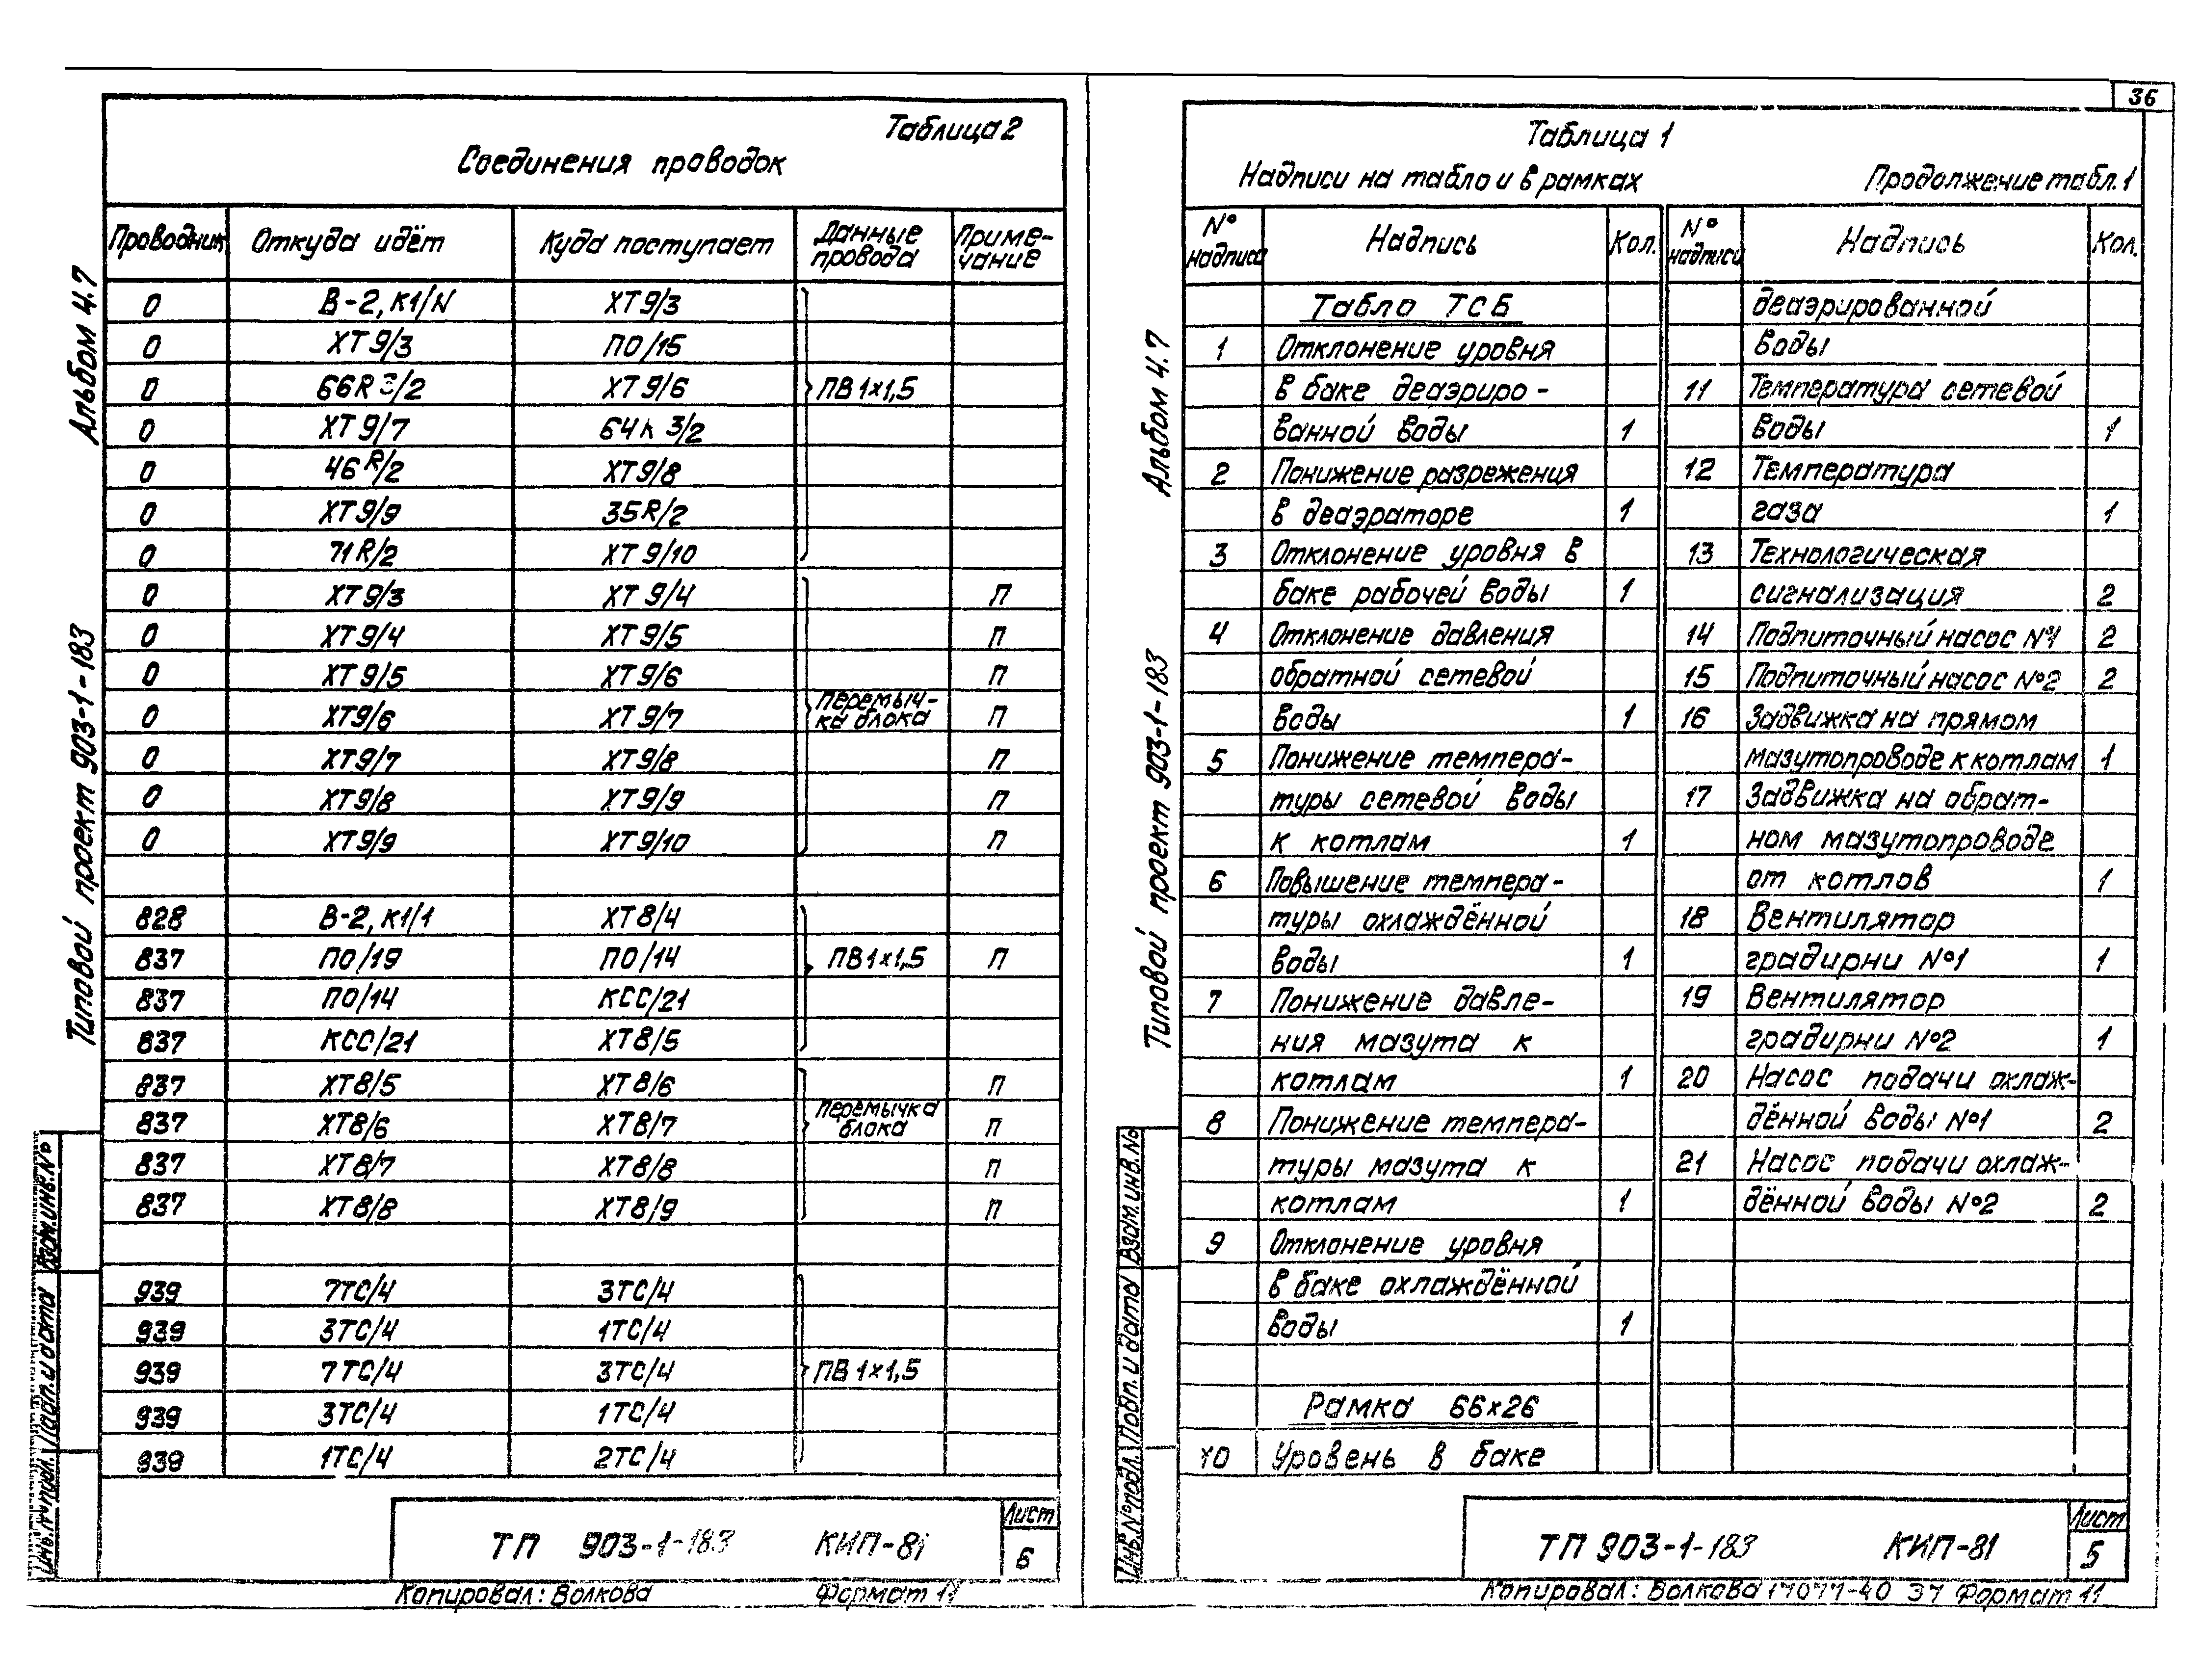 Таблица 2
Соединения проводок
Проводник Откуда идёт Куда поступает Данные провода Приме-чание
0 В-2, К1/N ХТ9/3
0 ХТ9/3 ПО/15
0 66R3/2 ХТ9/6 ПВ1×1,5
0 ХТ9/7 64К3/2
0 46R/2 ХТ9/8
0 ХТ9/9 35R/2
0 71R/2 ХТ9/10
0 ХТ9/3 ХТ9/4 П
0 ХТ9/4 ХТ9/5 П
0 ХТ9/5 ХТ9/6 П
0 ХТ9/6 ХТ9/7 перемыч-ка блока П
0 ХТ9/7 ХТ9/8 П
0 ХТ9/8 ХТ9/9 П
0 ХТ9/9 ХТ9/10 П
828 В-2, К1/1 ХТ8/4
837 ПО/19 ПО/14 ПВ1×1,5 П
837 ПО/14 КСС/21
837 КСС/21 ХТ8/5
837 ХТ8/5 ХТ8/6 П
837 ХТ8/6 ХТ8/7 перемычка блока П
837 ХТ8/7 ХТ8/8 П
837 ХТ8/8 ХТ8/9 П
939 7ТС/4 3ТС/4
939 3ТС/4 1ТС/4
939 7ТС/4 3ТС/4 ПВ1×1,5
939 3ТС/4 1ТС/4
939 1ТС/4 2ТС/4
ТП 903-1-183 КИП-81 Лист
6
Копировал: Волкова Формат 11
Альбом 4.7
Типовой проект 903-1-183
Взам.инв.№
Подп. и дата
Инв.№ подл.
36
Таблица 1
Надписи на табло и в рамках Продолжение табл. 1
№ надписи Надпись Кол. № надписи Надпись Кол.
Табло ТСБ
1 Отклонение уровня
в баке деаэриро-
ванной воды 1
2 Понижение разрежения
в деаэраторе 1
3 Отклонение уровня в
баке рабочей воды 1
4 Отклонение давления
обратной сетевой
воды 1
5 Понижение темпера-
туры сетевой воды
к котлам 1
6 Повышение темпера-
туры охлаждённой
воды 1
7 Понижение давле-
ния мазута к
котлам 1
8 Понижение темпера-
туры мазута к
котлам 1
9 Отклонение уровня
в баке охлаждённой
воды 1
Рамка 66×26
10 Уровень в баке
деаэрированной
воды
11 Температура сетевой
воды 1
12 Температура
газа 1
13 Технологическая
сигнализация 2
14 Подпиточный насос №1 2
15 Подпиточный насос №2 2
16 Задвижка на прямом
мазутопроводе к котлам 1
17 Задвижка на обрат-
ном мазутопроводе
от котлов 1
18 Вентилятор
градирни №1 1
19 Вентилятор
градирни №2 1
20 Насос подачи охлаж-
дённой воды №1 2
21 Насос подачи охлаж-
дённой воды №2 2
ТП 903-1-183 КИП-81 Лист
5
Копировал: Волкова 17077-40 37 Формат 11
Альбом 4.7
Типовой проект 903-1-183
Взам. инв.№
Подп. и дата
Инв.№ подл.